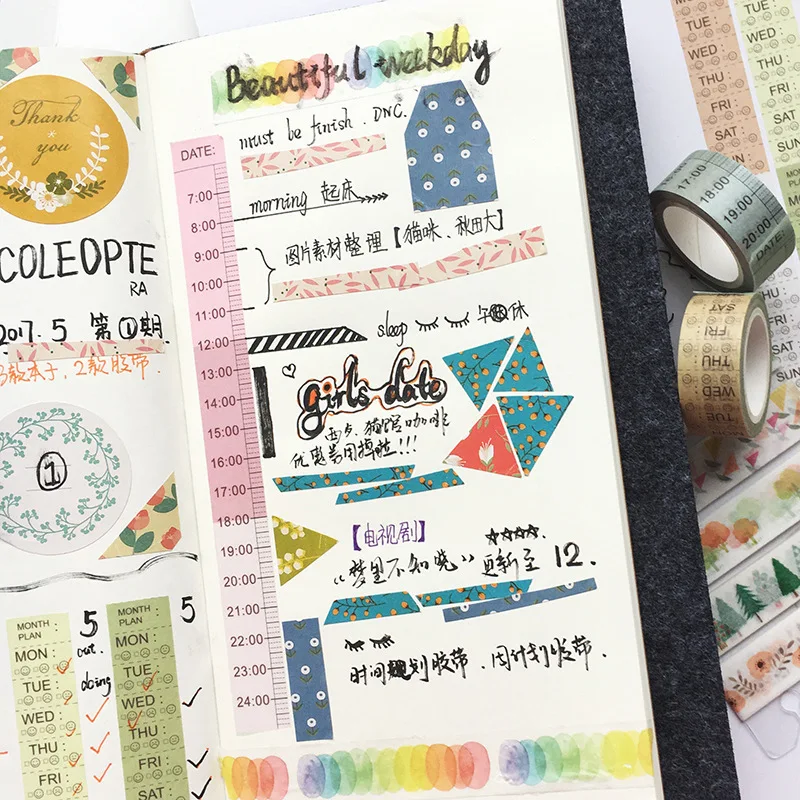 Thank
you
COLEOPTE
RA
2017.5 第①期
3款本子,2款胶带.
1
MONTH PLAN
5
MON:
out.
TUE:
doing
WED:
THU:
FRI
MONTH PLAN
5
MON:
TUE:
WED:
THU:
FRI
SAT
Beautiful weekday
must be finish. DNC.
DATE:
7:00
morning 起床
8:00
9:00
图片素材整理【猫咪、秋田犬】
10:00
11:00
sleep 午休
12:00
13:00
girl's date
14:00
西点.猫馆咖啡
15:00
优惠券用掉啦!!!
16:00
17:00
18:00
【电视剧】
19:00
《梦里不知晓》更新至 12.
20:00
21:00
22:00
时间规划胶带.周计划胶带.
23:00
24:00
TUE:
WED:
THU:
FRI
SAT:
SUN:
TUE:
WED:
THU:
FRI
SAT
SUN:
MONTH PLAN
MON:
TUE:
WED:
THU:
FRI
SAT
SUN:
17:00
18:00
19:00
20:00
DATE:
SAT
FRI
THU
WED
TUE